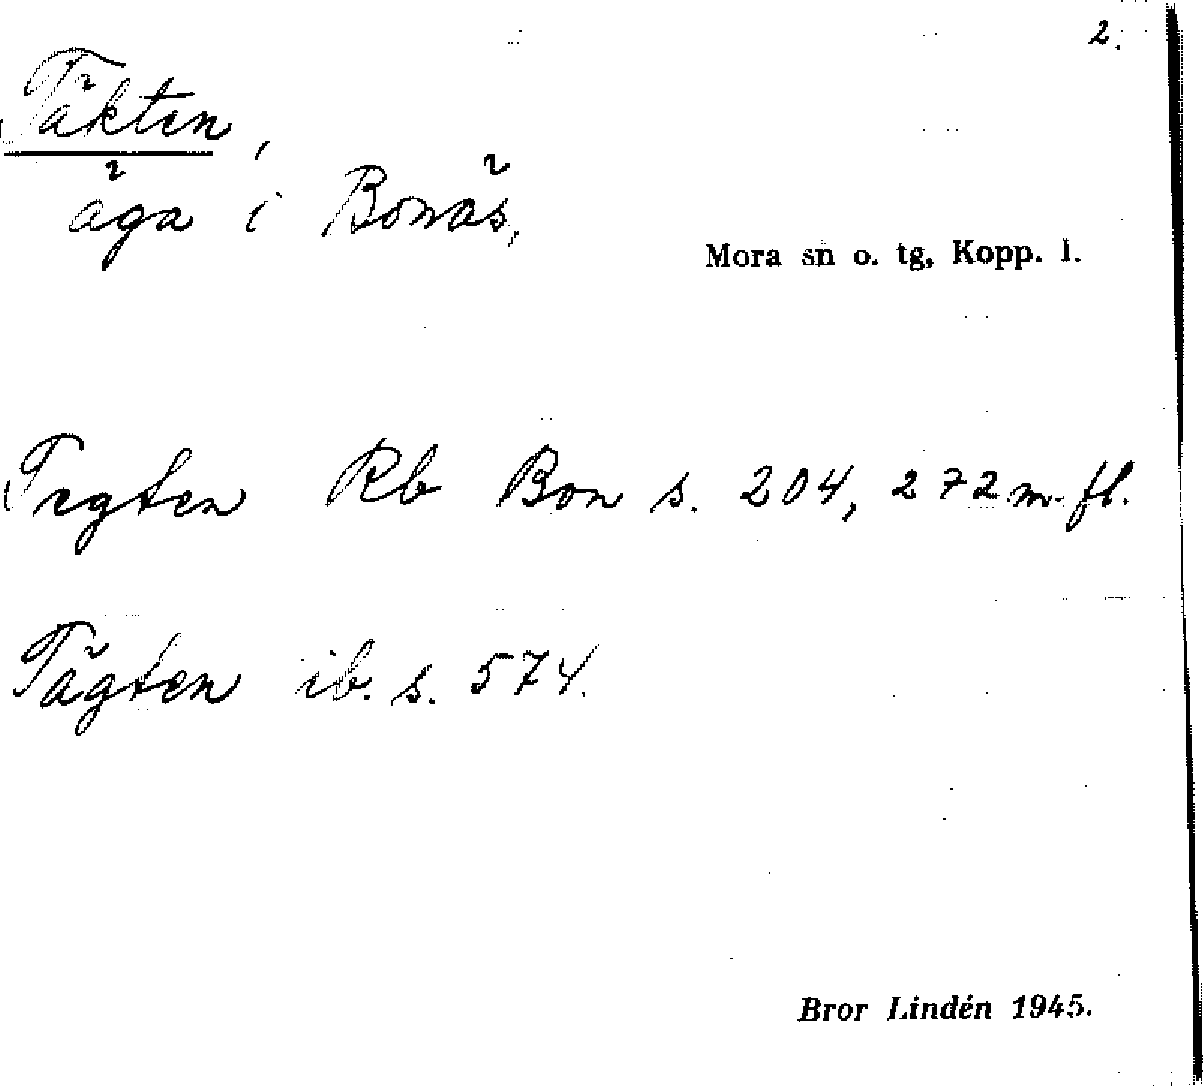 2.
Täkten,
äga i Bonäs,
Mora sn o. tg, Kopp. l.
Tegten Rb Bon s. 204, 272 m. fl.
Tägten ib. s. 574.
Bror Lindén 1945.